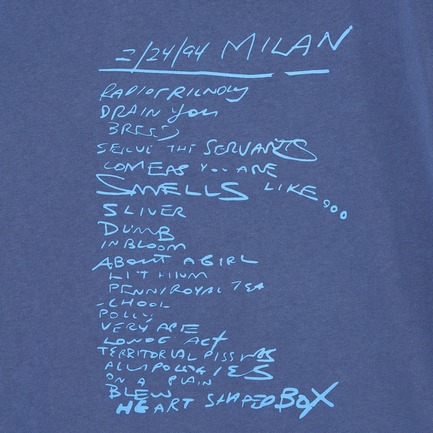 2/24/94 MILAN
RADIOFRIENDLY
DRAIN YOU
BREED
SERVE THE SERVANTS
COMEAS YOU ARE
SMELLS LIKE...
SLIVER
DUMB
IN BLOOM
ABOUT A GIRL
LITHIUM
PENNYROYAL TEA
SCHOOL
POLLY
VERY APE
LOUNGE ACT
TERRITORIAL PISSINGS
ALLAPOLOGIES
ON A PLAIN
BLEW
HEART SHAPED BOX